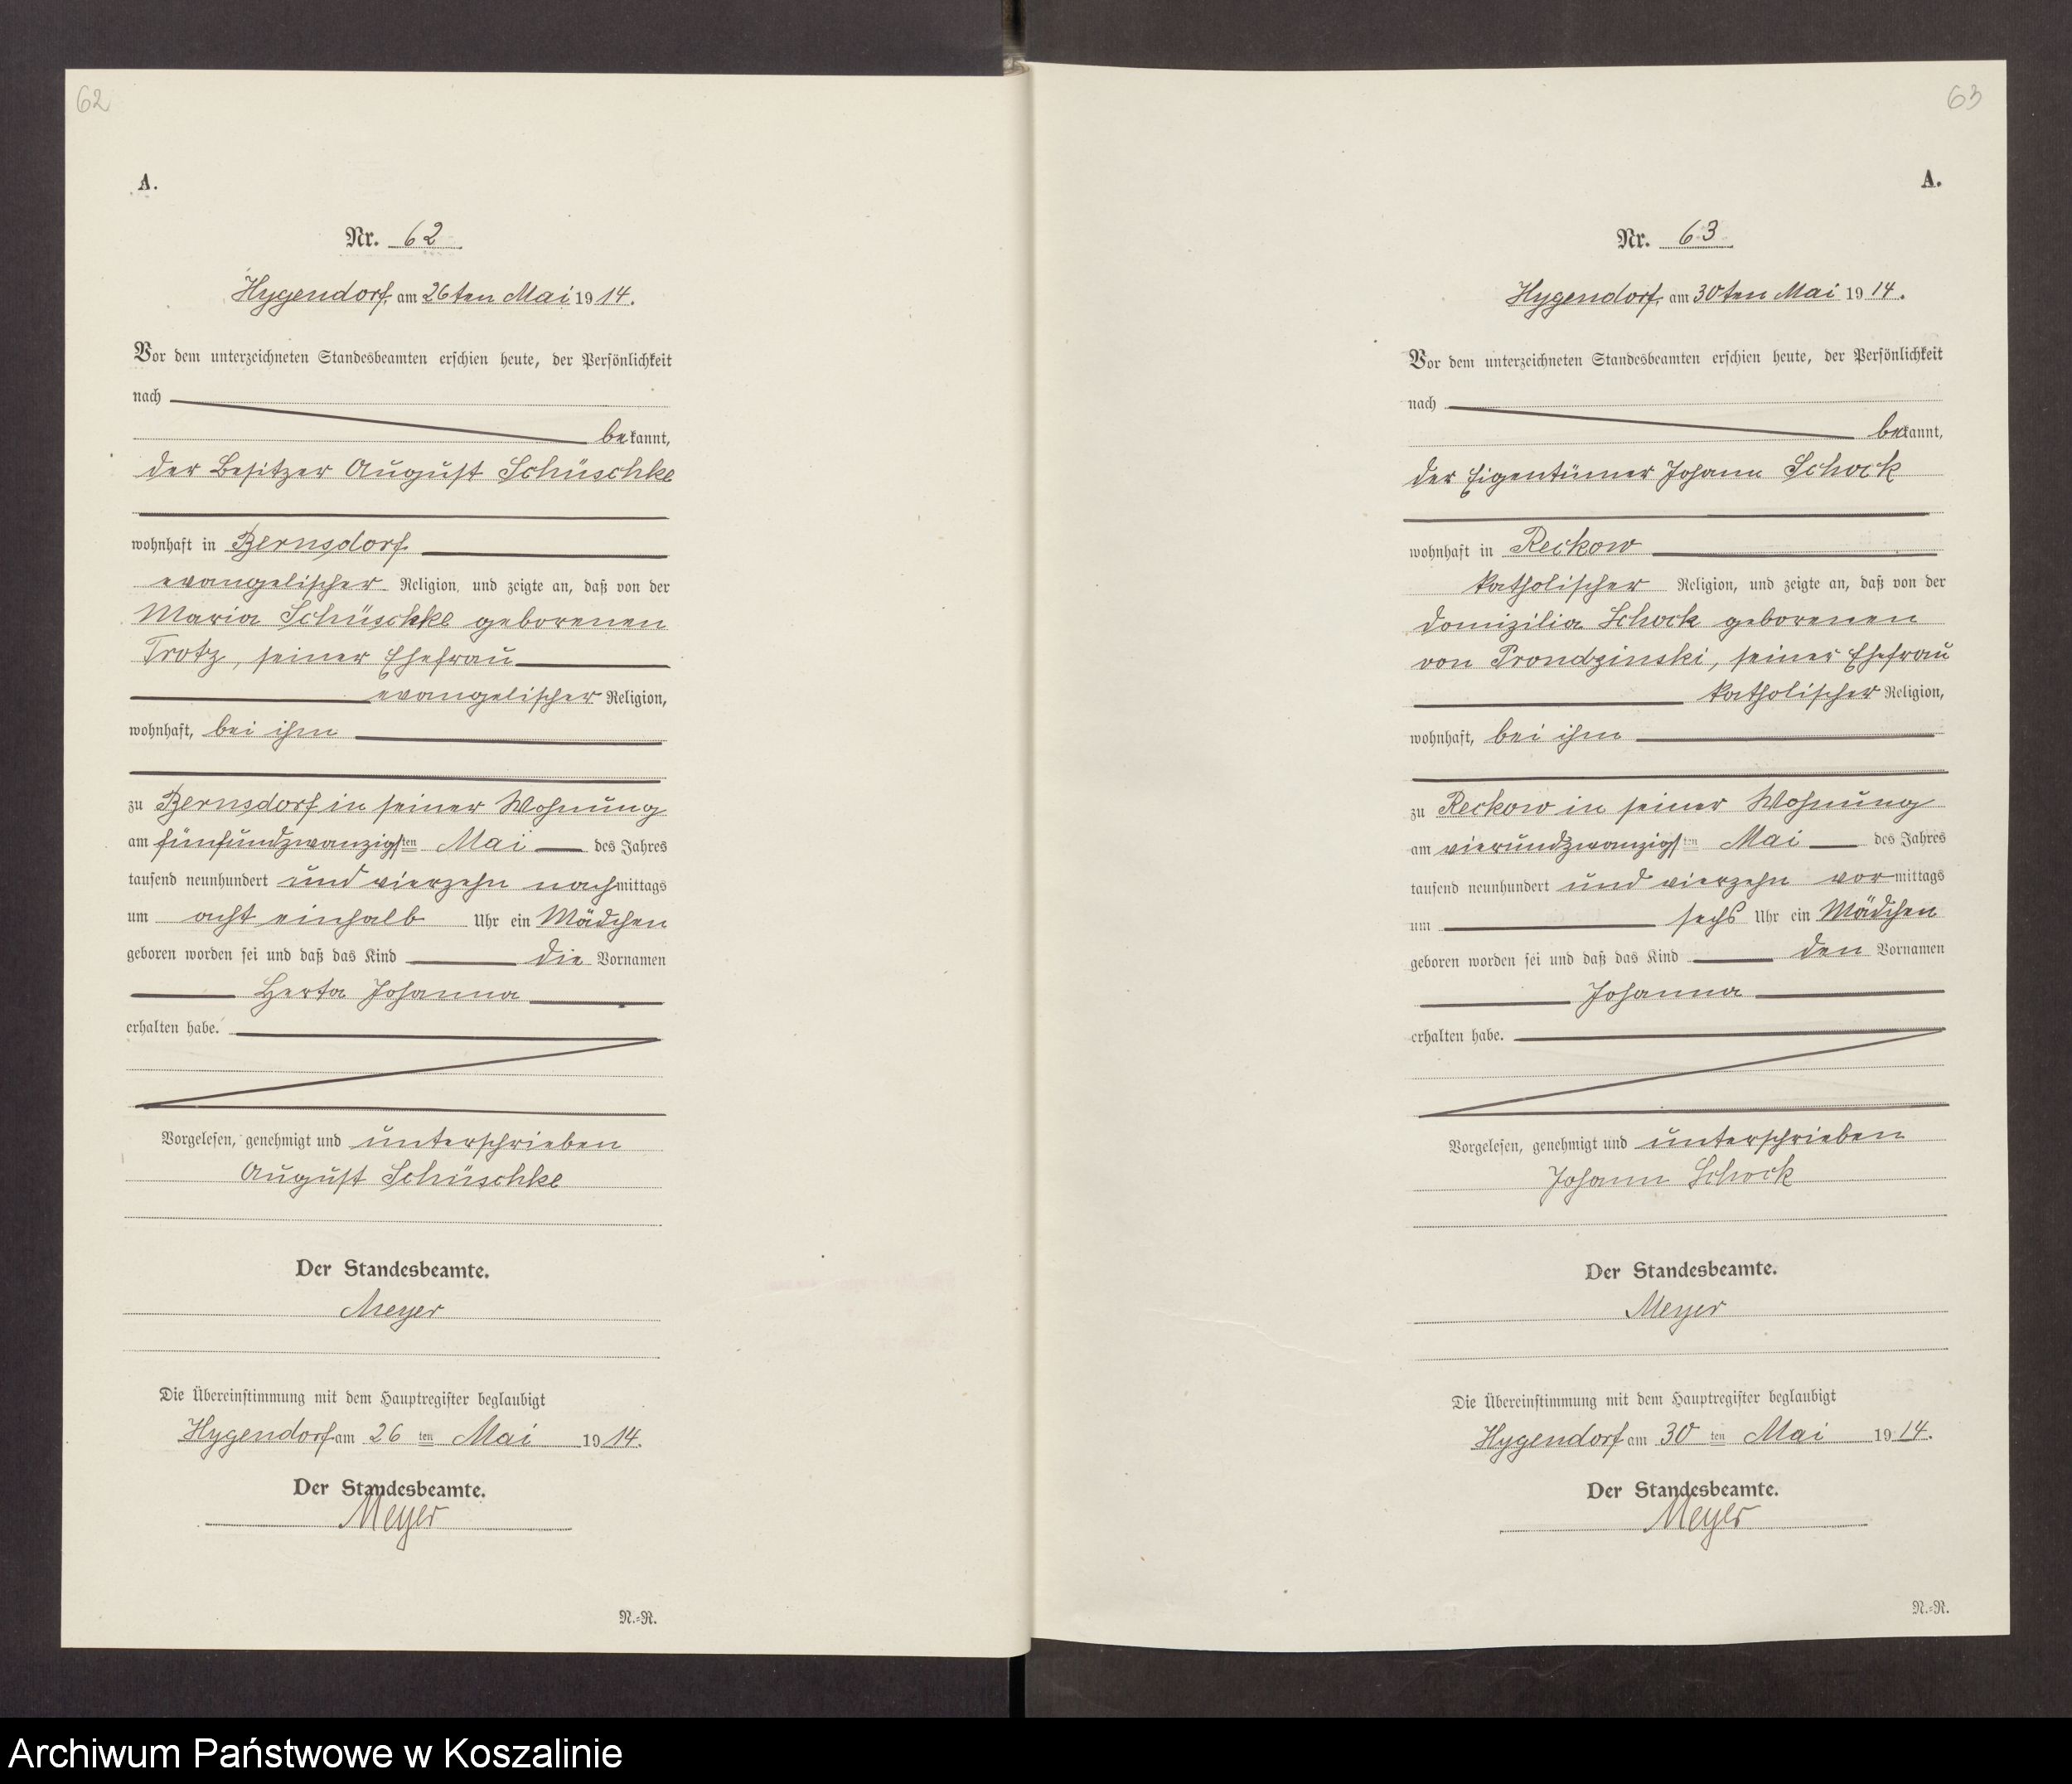 62
A.
Nr. 62
Hygendorf, am 26ten Mai 1914.
Vor dem unterzeichneten Standesbeamten erschien heute, der Persönlichkeit
nach
bekannt,
der Besitzer August Schüschke
wohnhaft in Bernsdorf
evangelischer Religion, und zeigte an, daß von der
Maria Schüschke geborenen
Trotz, seiner Ehefrau
evangelischer Religion,
wohnhaft, bei ihm
zu Bernsdorf in seiner Wohnung
am fünfundzwanzigsten Mai des Jahres
tausend neunhundert und vierzehn nachmittags
um acht einhalb Uhr ein Mädchen
geboren worden sei und daß das Kind die Vornamen
Herta Johanna
erhalten habe.
Vorgelesen, genehmigt und unterschrieben
August Schüschke
Der Standesbeamte.
Meyer
Die Übereinstimmung mit dem Hauptregister beglaubigt
Hygendorf am 26 ten Mai 1914.
Der Standesbeamte.
Meyer
N.-R.
63
A.
Nr. 63
Hygendorf, am 30ten Mai 1914.
Vor dem unterzeichneten Standesbeamten erschien heute, der Persönlichkeit
nach
bekannt,
der Eigentümer Johann Schock
wohnhaft in Reckow
katholischer Religion, und zeigte an, daß von der
Domizilia Schock geborenen
von Prondzinski, seiner Ehefrau
katholischer Religion,
wohnhaft, bei ihm
zu Reckow in seiner Wohnung
am vierundzwanzigsten Mai des Jahres
tausend neunhundert und vierzehn vormittags
um sechs Uhr ein Mädchen
geboren worden sei und daß das Kind den Vornamen
Johanna
erhalten habe.
Vorgelesen, genehmigt und unterschrieben
Johann Schock
Der Standesbeamte.
Meyer
Die Übereinstimmung mit dem Hauptregister beglaubigt
Hygendorf am 30 ten Mai 1914.
Der Standesbeamte.
Meyer
N.-R.
Archiwum Państwowe w Koszalinie